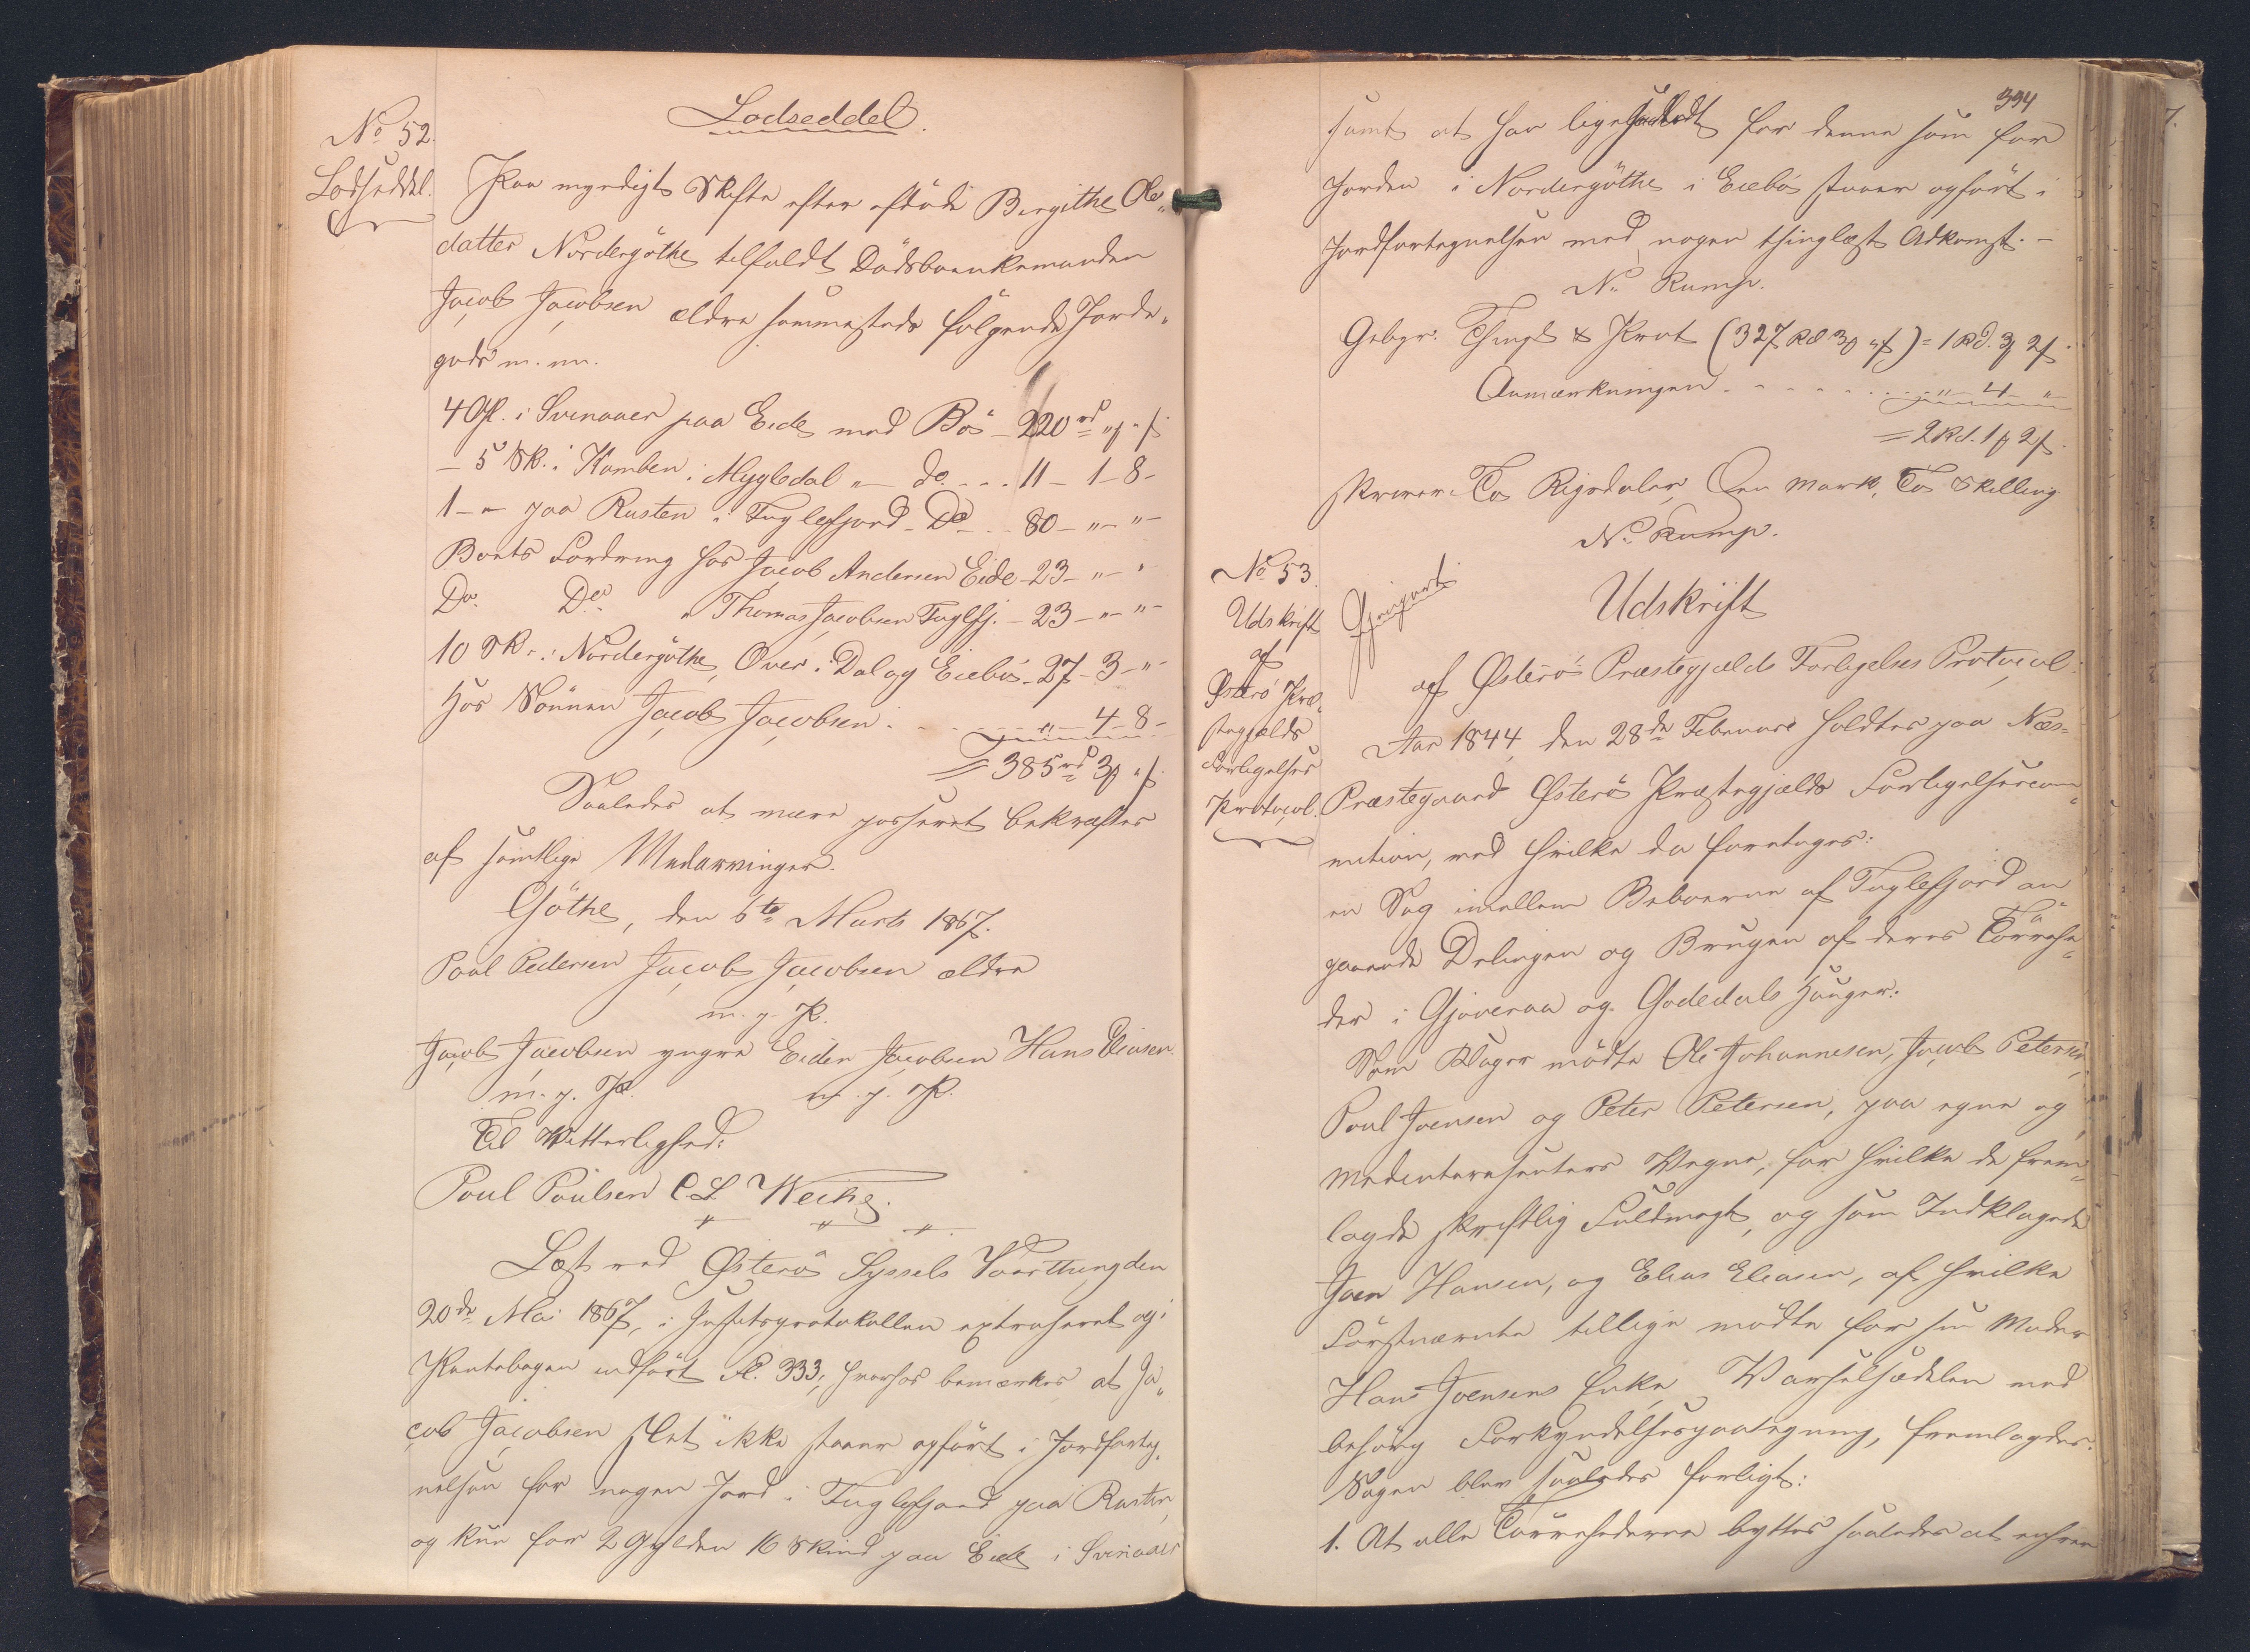 No 52.
Lodseddel.
Lodseddel.
Paa myndigt Skifte efter afdøde Birgithe Ole„
datter Nordregöthe tilfaldt Dödsboenkemanden
Jacob Jacobsen ældre sammesteds fölgende Jorde„
gods m. m.
4 Gl. i Svinaaer paa Eide med Bö - 220 rd „ p „ s
- 5 Sk. i Kamben i Mygledal „ - do. . . . 11 - 1 - 8 -
1 - „ - paa Rusten i Fuglefjord - Do - 80 - „ - „ -
Boets Fordring hos Jacob Andersen Eide - 23 - „ - „
Do. Do. „ Thomas Jacobsen Fuglfj. - 23 - „ - „ -
10 Sk. i Nordregöthe, Over i Dal og Eiebö - 27 - 3 - „ -
Hos Sönnen Jacob Jacobsen . . . . . „ - 4 - 8 -
= 385 rd 3 p „ s.
Saaledes at være passeret bekræftes
af samtlige Medarvinger.
Göthe, den 6te Marts 1867.
Poul Pedersen Jacob Jacobsen ældre
m. p. P.
Jacob Jacobsen yngre Eiden Jacobsen Hans Eliasen
m. p. P. m. p. P.
Til Vitterlighed:
Poul Poulsen C. L. Weihe.
Læst ved Østerö Syssels Vaarthing den
20de Mai 1867, i Justitsprotokollen extraheret og i
Pantebogen indfört Fl. 333, hvorhos bemærkes at Ja„
cob Jacobsen slet ikke staaer opfört i Jordforteg„
nelsen for nogen Jord i Fuglefjord paa Rusten,
og kun for 2 Gylden 16 Skind paa Eide i Svinaaer
334
samt at han ligesaalidt for denne som for
Jorden i Nordregöthe i Eiebö staaer opfört i
Jordfortegnelsen med nogen thinglæst Adkomst. -
N. Rump.
Gebyr. Thingl. & Prot (327 Rd 3 p „ s) = 1 Rd. 3 p 2 s.
Anmærkningen . . . . . . „ - 4 - „
= 2 Rd. 1 p 2 s.
skriver To Rigsdaler, Een Mark, To Skilling
N. Rump.
No 53.
Udskrift
af
Østerö Præ„
stegjelds
Forligelses
Protocol.
Udskrift
af Østerö Præstegjælds Forligelses Protocol.
Aar 1844, den 28de Februar holdtes paa Næs-
Præstegaard Østerö Præstegjælds Forligelsescom„
mission, ved hvilke da foretoges:
en Sag imellem Beboerne af Fuglefjord an„
gaaende Delingen og Brugen af deres Törveste„
der i Gjoveraa og Godedals Hauger.
Som Klager mödte Ole Johannesen, Jacob Petersen,
Poul Joensen og Peter Petersen, paa egne og
Medinteressenters Vegne, for hvilke de frem„
lagde skriftlig Fuldmagt, og som Indklagede
Joen Hansen, og Elias Eliasen, af hvilke
Förstnævnte tillige mödte for sin Moder
Hans Joensens Enke, Varselsedelen med
behörig Forkyndelsespaategning, fremlagdes.
Sagen blev saaledes forligt:
1. At alle Törvestederne byttes saaledes at enhver